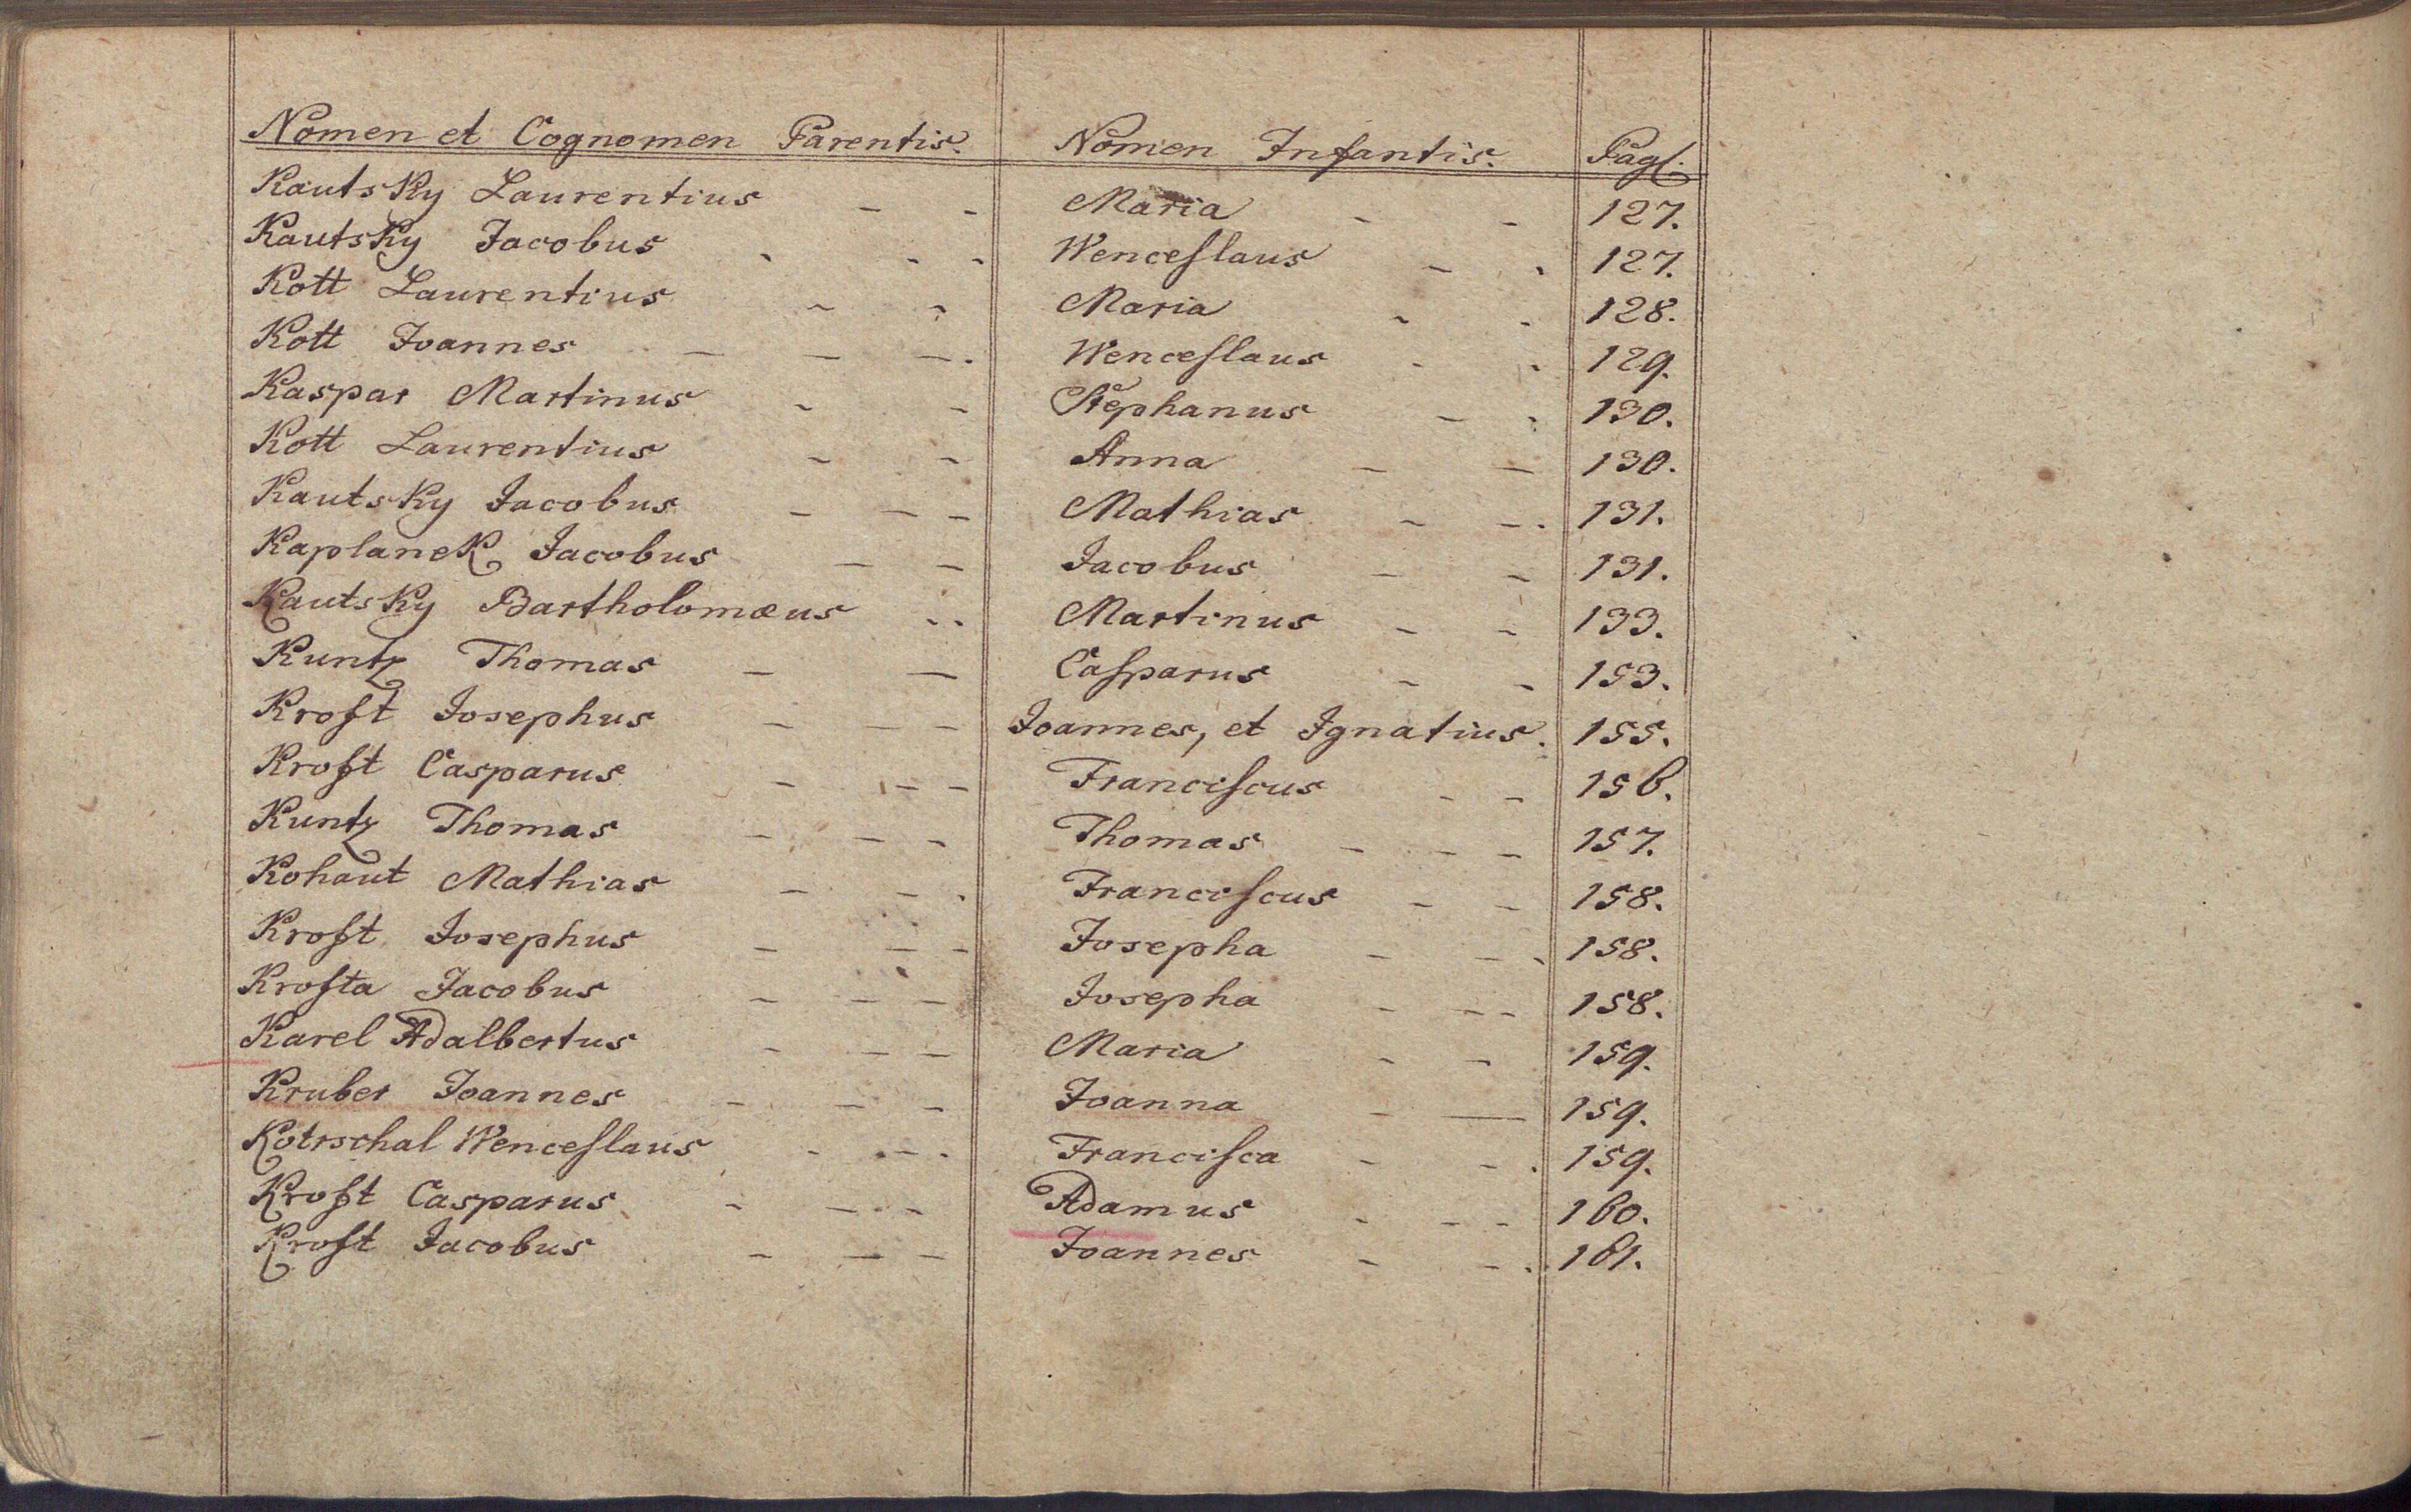 Nomen et Cognomen Parentis. Nomen Infantis. Pag.
Kautsky Laurentius - - Maria - - 127.
Kautsky Jacobus - - - Wenceslaus - - 127.
Kott Laurentius - - Maria - - 128.
Kott Joannes - - - Wenceslaus - - 129.
Kaspar Martinus - - Stephanus - - 130.
Kott Laurentius - - Anna - - 130.
Kautsky Jacobus - - - Mathias - - 131.
Kaplanek Jacobus - - Jacobus - - 131.
Kautsky Bartholomæus - - Martinus - - 133.
Kuntz Thomas - - Casparus - - 153.
Kroft Josephus - - - Joannes, et Ignatius. 155.
Kroft Casparus - - - Franciscus - - 156.
Kuntz Thomas - - - Thomas - - - 157.
Kohaut Mathias - - - Franciscus - - 158.
Kroft Josephus - - - Josepha - - - 158.
Krofta Jacobus - - - Josepha - - - 158.
Karel Adalbertus - - - Maria - - 159.
Kruber Joannes - - - Joanna - - 159.
Kotrschal Wenceslaus - - - Francisca - - 159.
Kroft Casparus - - - Adamus - - - 160.
Kroft Jacobus - - - Joannes - - - 161.